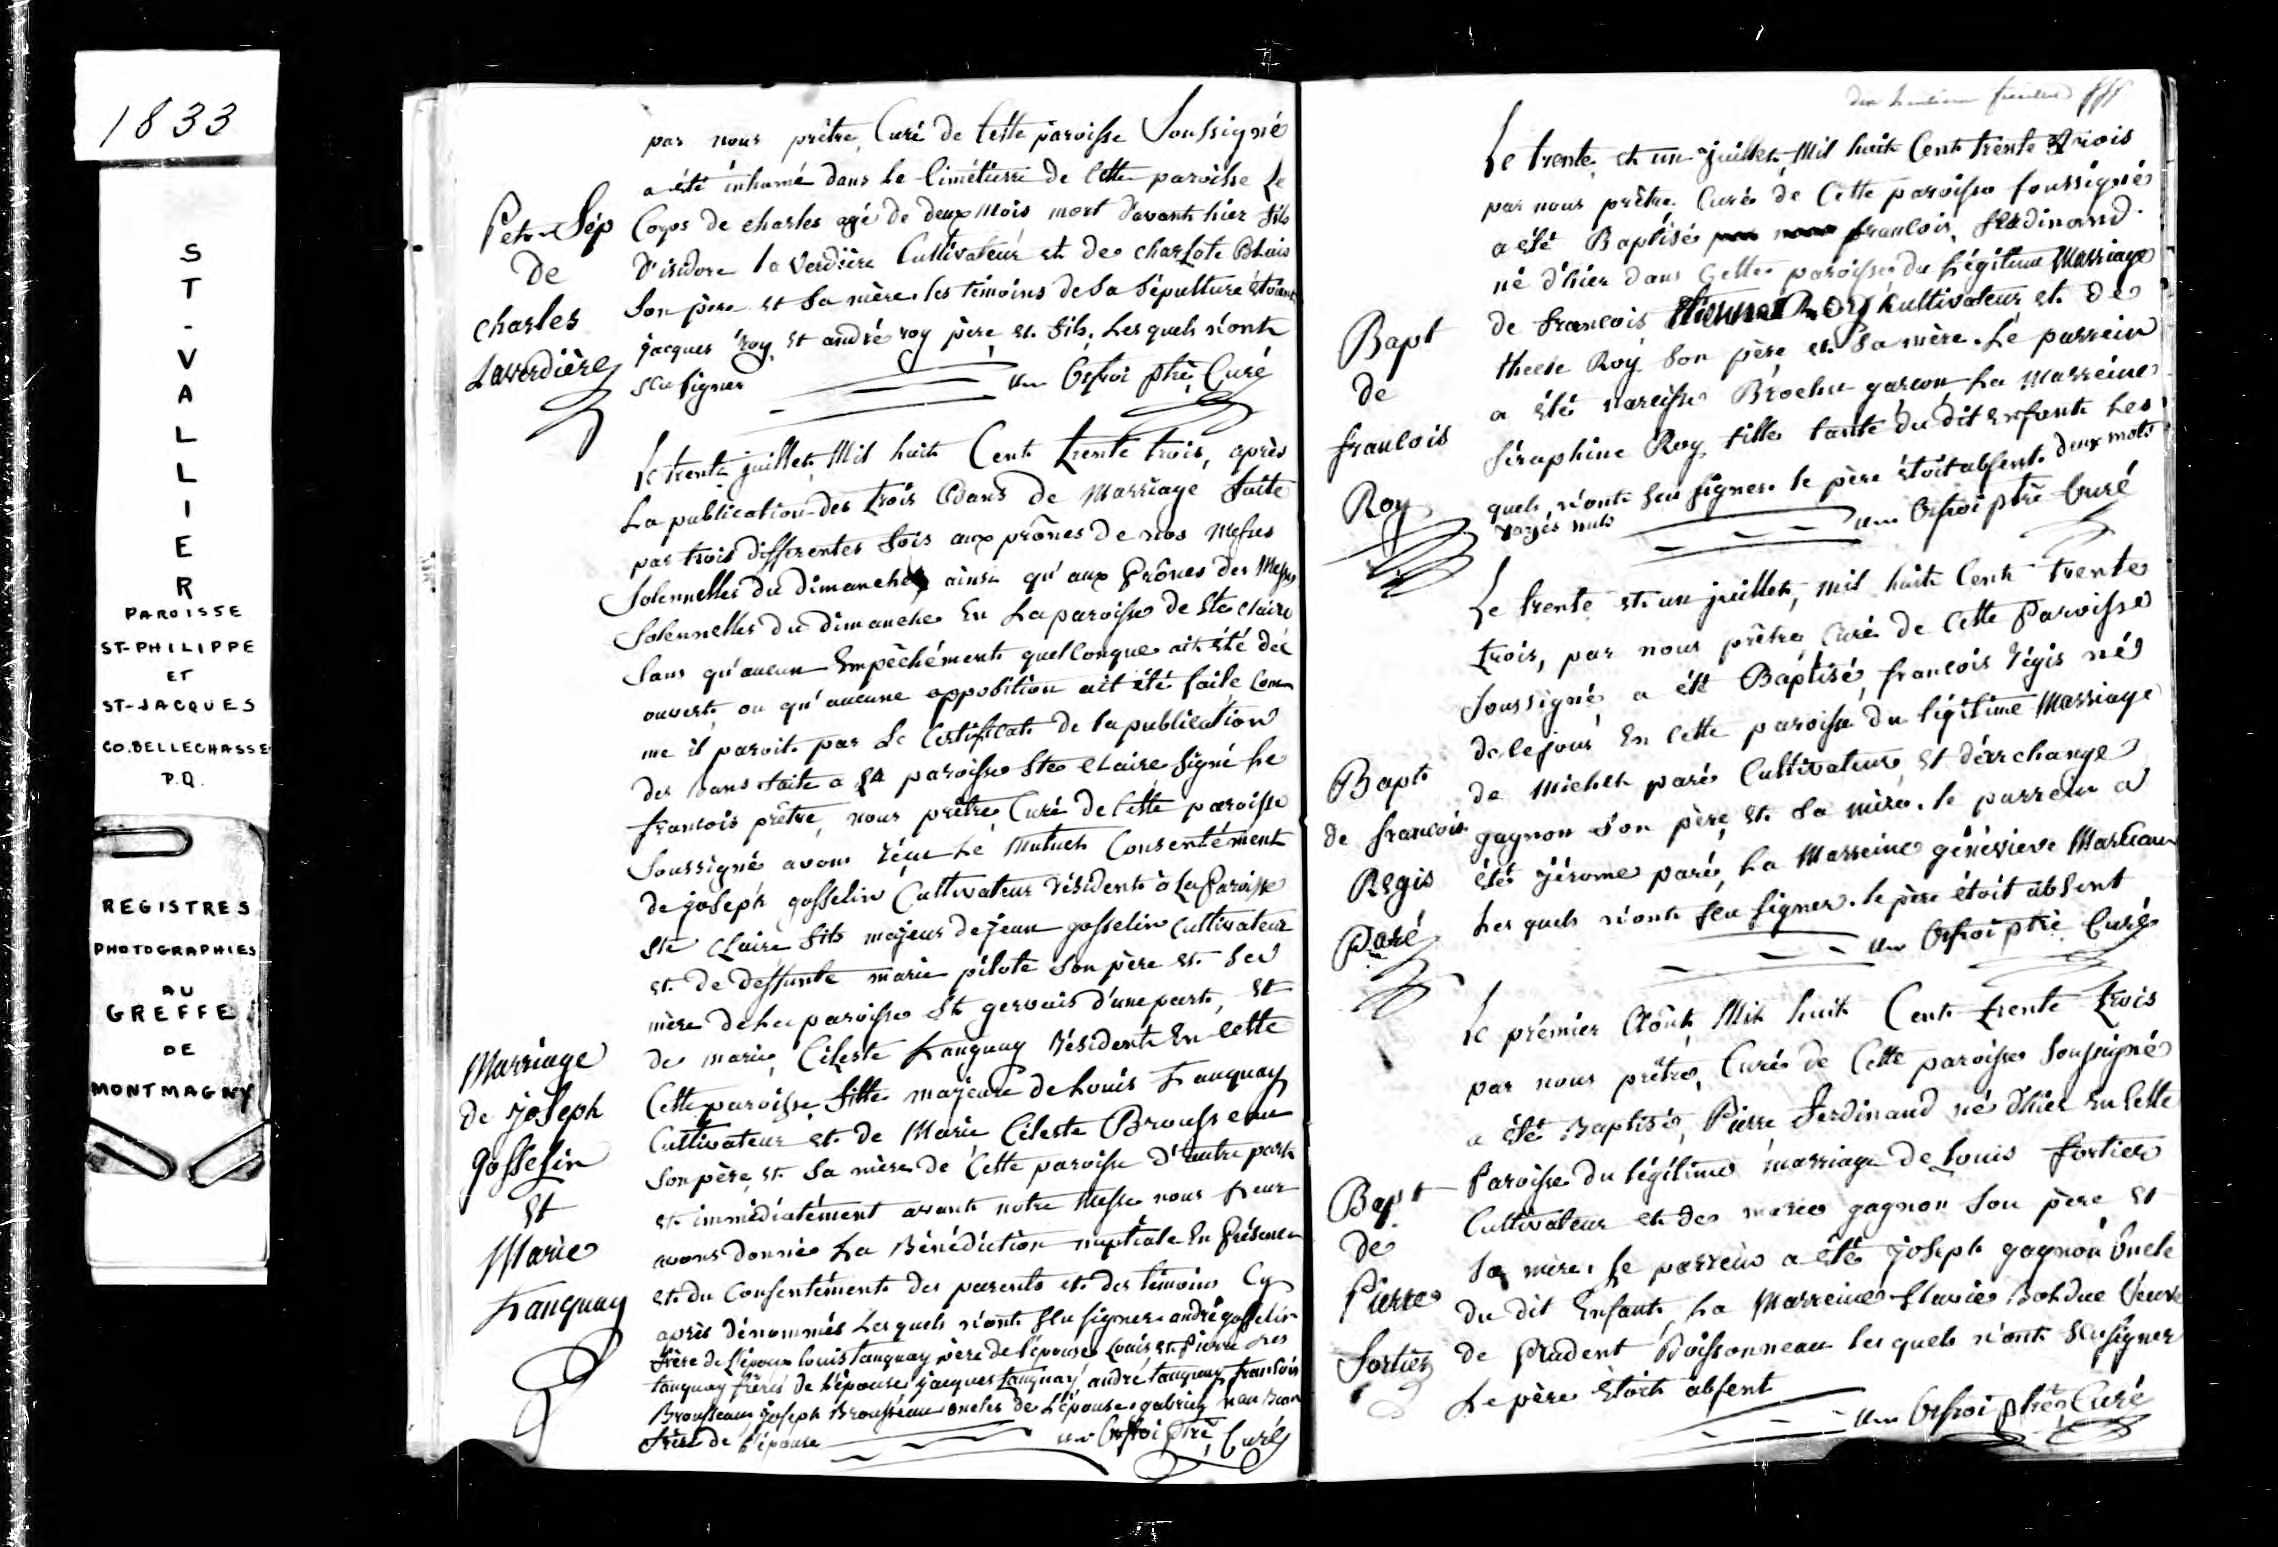 1833
S
T
-
V
A
L
L
I
E
R
PAROISSE
ST-PHILIPPE
ET
ST-JACQUES
CO. BELLECHASSE
P.Q.
REGISTRES
PHOTOGRAPHIES
AU
GREFFE
DE
MONTMAGNY
par nous prêtre, Curé de Cette paroisse Soussigné
a été inhumé dans le Cimétierre de Cette paroisse Le
Corps de charles agé de deux Mois mort d'avant hier fils
D'isidore laverdière Cultivateur et de charlote Blais
Son père et Sa mère. les témoins de Sa Sépulture étoient
jacques roy et andré roy père et fils. Lesquels n'ont
Sçu signer Ptre Curé
Petr Sép
De
charles
Laverdière
le trente juillet Mil huit Cent trente trois, après
La publication des trois Bans de Marriage faite
par trois differentes fois aux prônes de nos Messes
Solennelles du dimanche ainsi qu'aux Prônes des Messes
Solennelles du dimanche En La paroisse de Ste Claire
Sans qu'aucun Empêchément quelconque ait été déc
ouvert ou qu'aucune opposition ait été faite Com
me il paroit par Le Certificat de la publication
des bans faite a la paroisse Ste Claire Signé Le
francois prêtre, nous prêtre Curé de Cette paroisse
Soussigné avons réçu Lé Mutuel Consentément
de joseph gosselin Cultivateur résident à La Paroisse
Ste Claire fils majeur de jean gosselin cultivateur
et de deffunte marie pilote Son père et Sa
mère de La paroisse St gervais d'une part, et
de marie Céleste Tanguay résidente En Cette
Cette paroisse fille majeure de Louis Tanguay
Cultivateur et de Marie Céleste Brousseau
Son père et Sa mère de Cette paroisse d'autre part
et immédiatément avant notre Messe nous Leur
avons donné La Bénédiction nuptiale En Présence
et du Consentément des parents et des témoins Cy
après dénommés Lesquels n'ont Sçu signer andré gosselin
frère de l'époux louis Tanguay père de l'épouse Louis et Pierre Les
tanguay frères de L'épouse jacques Tanguay andré tanguay francois
Brousseau joseph Brousseau oncles de L'épouse gabriel
frère de l'épouse Ptre Curé
Marriage
de joseph
gosselin
Et
Marie
Tanguay
Le trente et un juillet Mil huit Cent trente trois
par nous prêtre Curé de Cette paroisse soussigné
a été Baptisé francois, ferdinand
né d'hier dans Cette paroisse du Légitime Marriage
de francois Roy Cultivateur et de
Roy Son père et Sa mère. Le parrein
a été narcisse Brochu garcon La Marreine
Séraphine Roy fille tante du dit Enfant Les
quels n'ont Sçu signer le père étoit absent. deux mots
rayés nuls Ptre Curé
Bapt
de
francois
Roy
Le trente et un juillet, mil huit Cent trente
trois, par nous prêtre Curé de Cette Paroisse
Soussigné a été Baptisé, francois régis né
de ce jour En Cette paroisse du légitime Marriage
de Michel paré Cultivateur et d'archange
gagnon Son père et Sa mère. le parrein a
été jérome paré, La Marreine généviève Marceau
Les quels n'ont Sçu signer. le père étoit absent
Ptre Curé
Bapt
de francois
Regis
Paré
le prémier Août Mil huit Cent trente trois
par nous prêtre, Curé de Cette paroisse Soussigné
a été Baptisé, Pierre Ferdinand né d'hier En Cette
Paroisse du légitime marriage de Louis fortier
Cultivateur et de marie gagnon Son père et
Sa mère. le parrein a été joseph gagnon oncle
du dit Enfant, La Marreine flavie Bolduc Veuve
de Prudent Boissonneau lesquels n'ont Sçu signer
Le père étoit absent
Ptre Curé
Bapt
de
Pierre
fortier